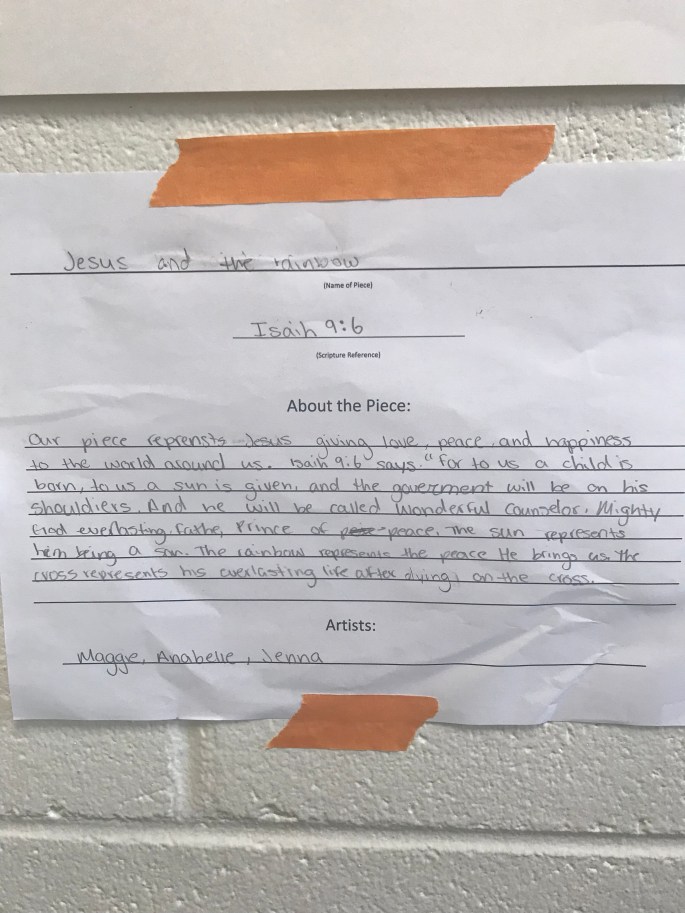 Jesus and the rainbow
(Name of Piece)
Isaih 9:6
(Scripture Reference)
About the Piece:
Our piece reprensts Jesus giving love, peace, and happiness
to the world around us. Isaih 9:6 says "for to us a child is
born, to us a sun is given, and the goverment will be on his
shouldiers. And he will be called Wonderful Counselor, Mighty
God everlasting fathe, Prince of peace. The sun represents
him being a son. The rainbow represents the peace He brings us. The
cross represents his everlasting life after dying on the cross.
Artists:
Maggie, Anabelle, Jenna